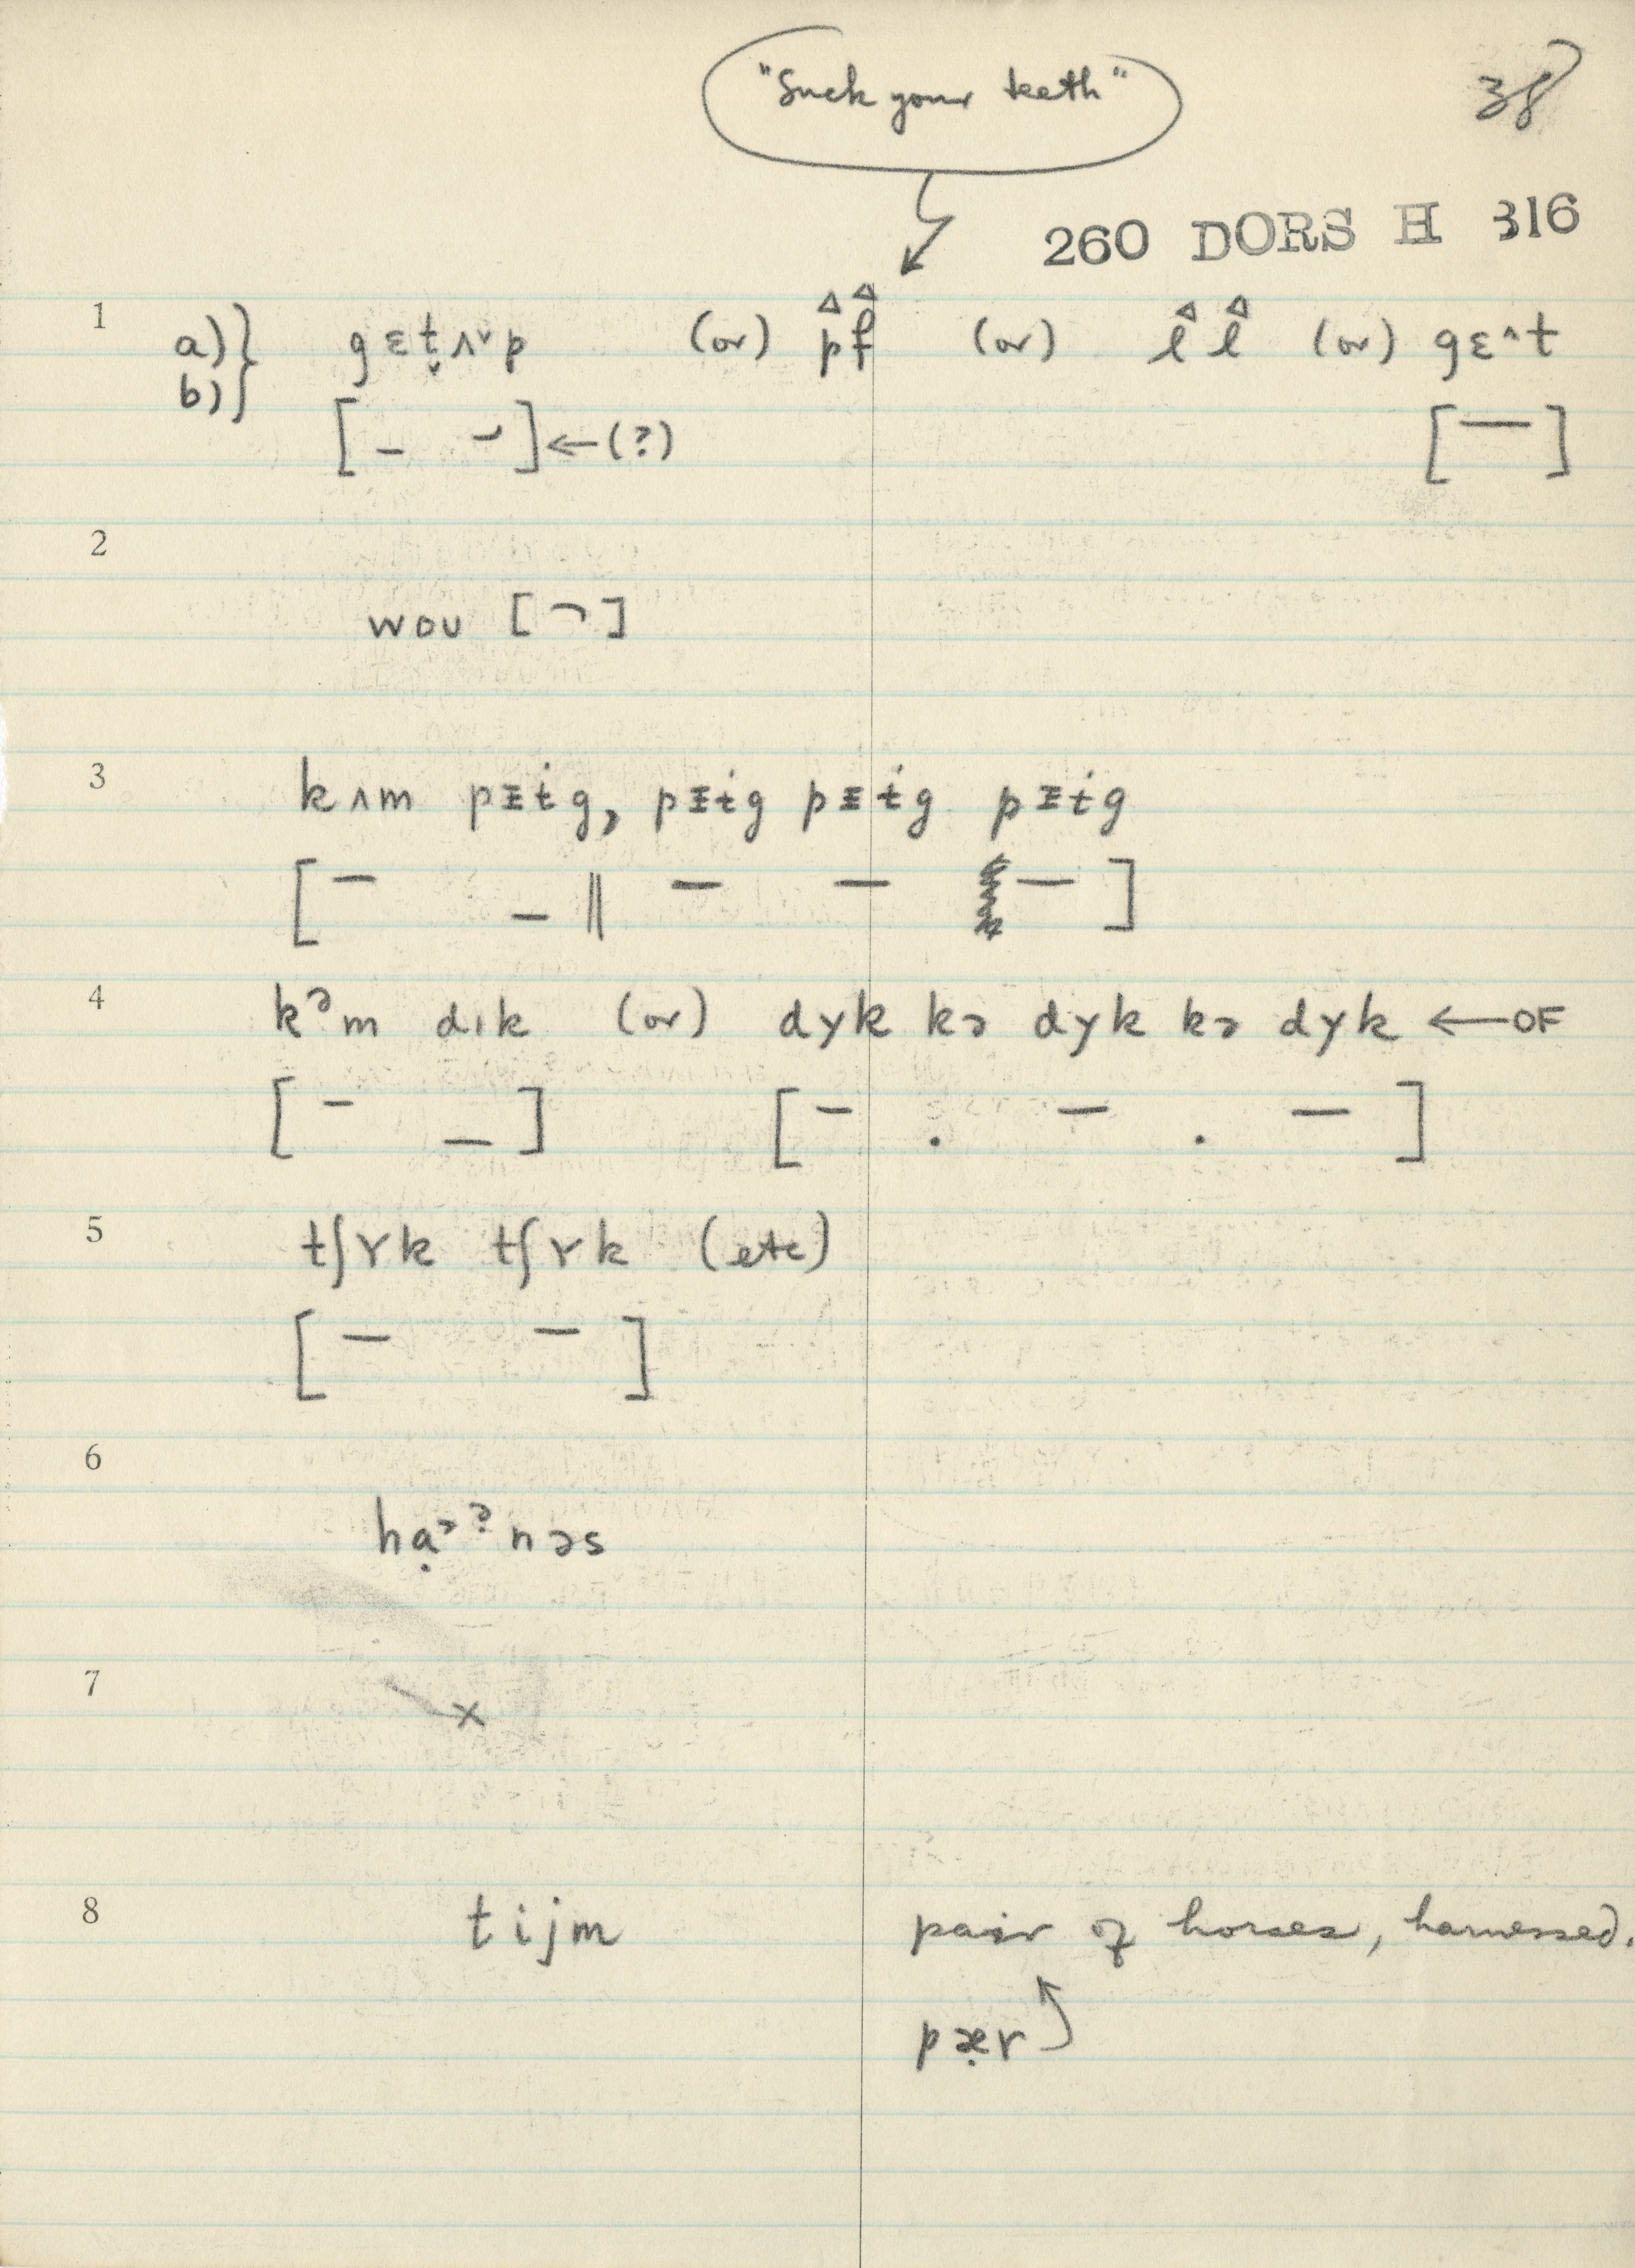 "Suck your teeth"
38
260 DORS H 316
1 a) b) } gɛt̬ʌ˅p (or) p̂f̂ (or) l̂ l̂ (or) gɛ^t
[ – – ] ← (?) [ — ]
2
woʊ [ ¬ ]
3 kʌm pɪɨg, pɪɨg pɪɨg pɪɨg
[ – _ || – – – ]
4 kᵊm dɪk (or) dʏk kə dʏk kə dʏk ← OF
[ – _ ] [ – . – . – ]
5 tʃɤk tʃɤk (etc)
[ – – ]
6
hạᵊˀnəs
7 x
8 tijm pair of horses, harnessed.
pæ̣r